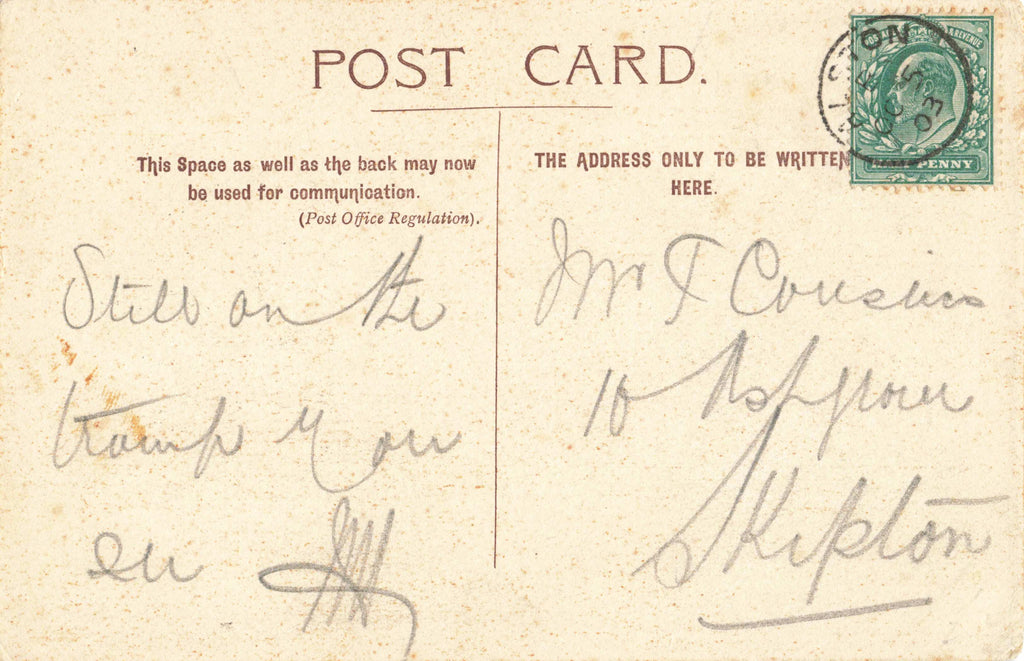 POST CARD.
This Space as well as the back may now
be used for communication.
(Post Office Regulation).
THE ADDRESS ONLY TO BE WRITTEN
HERE.
POSTAGE & REVENUE
PENNY
OC 5
03
Still on the
tramp
Mr T Cousins
10 Ashgrove
Skipton